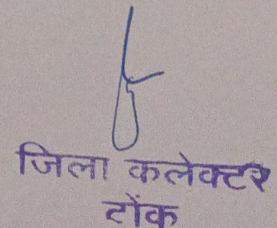 जिला कलेक्टर
टोंक